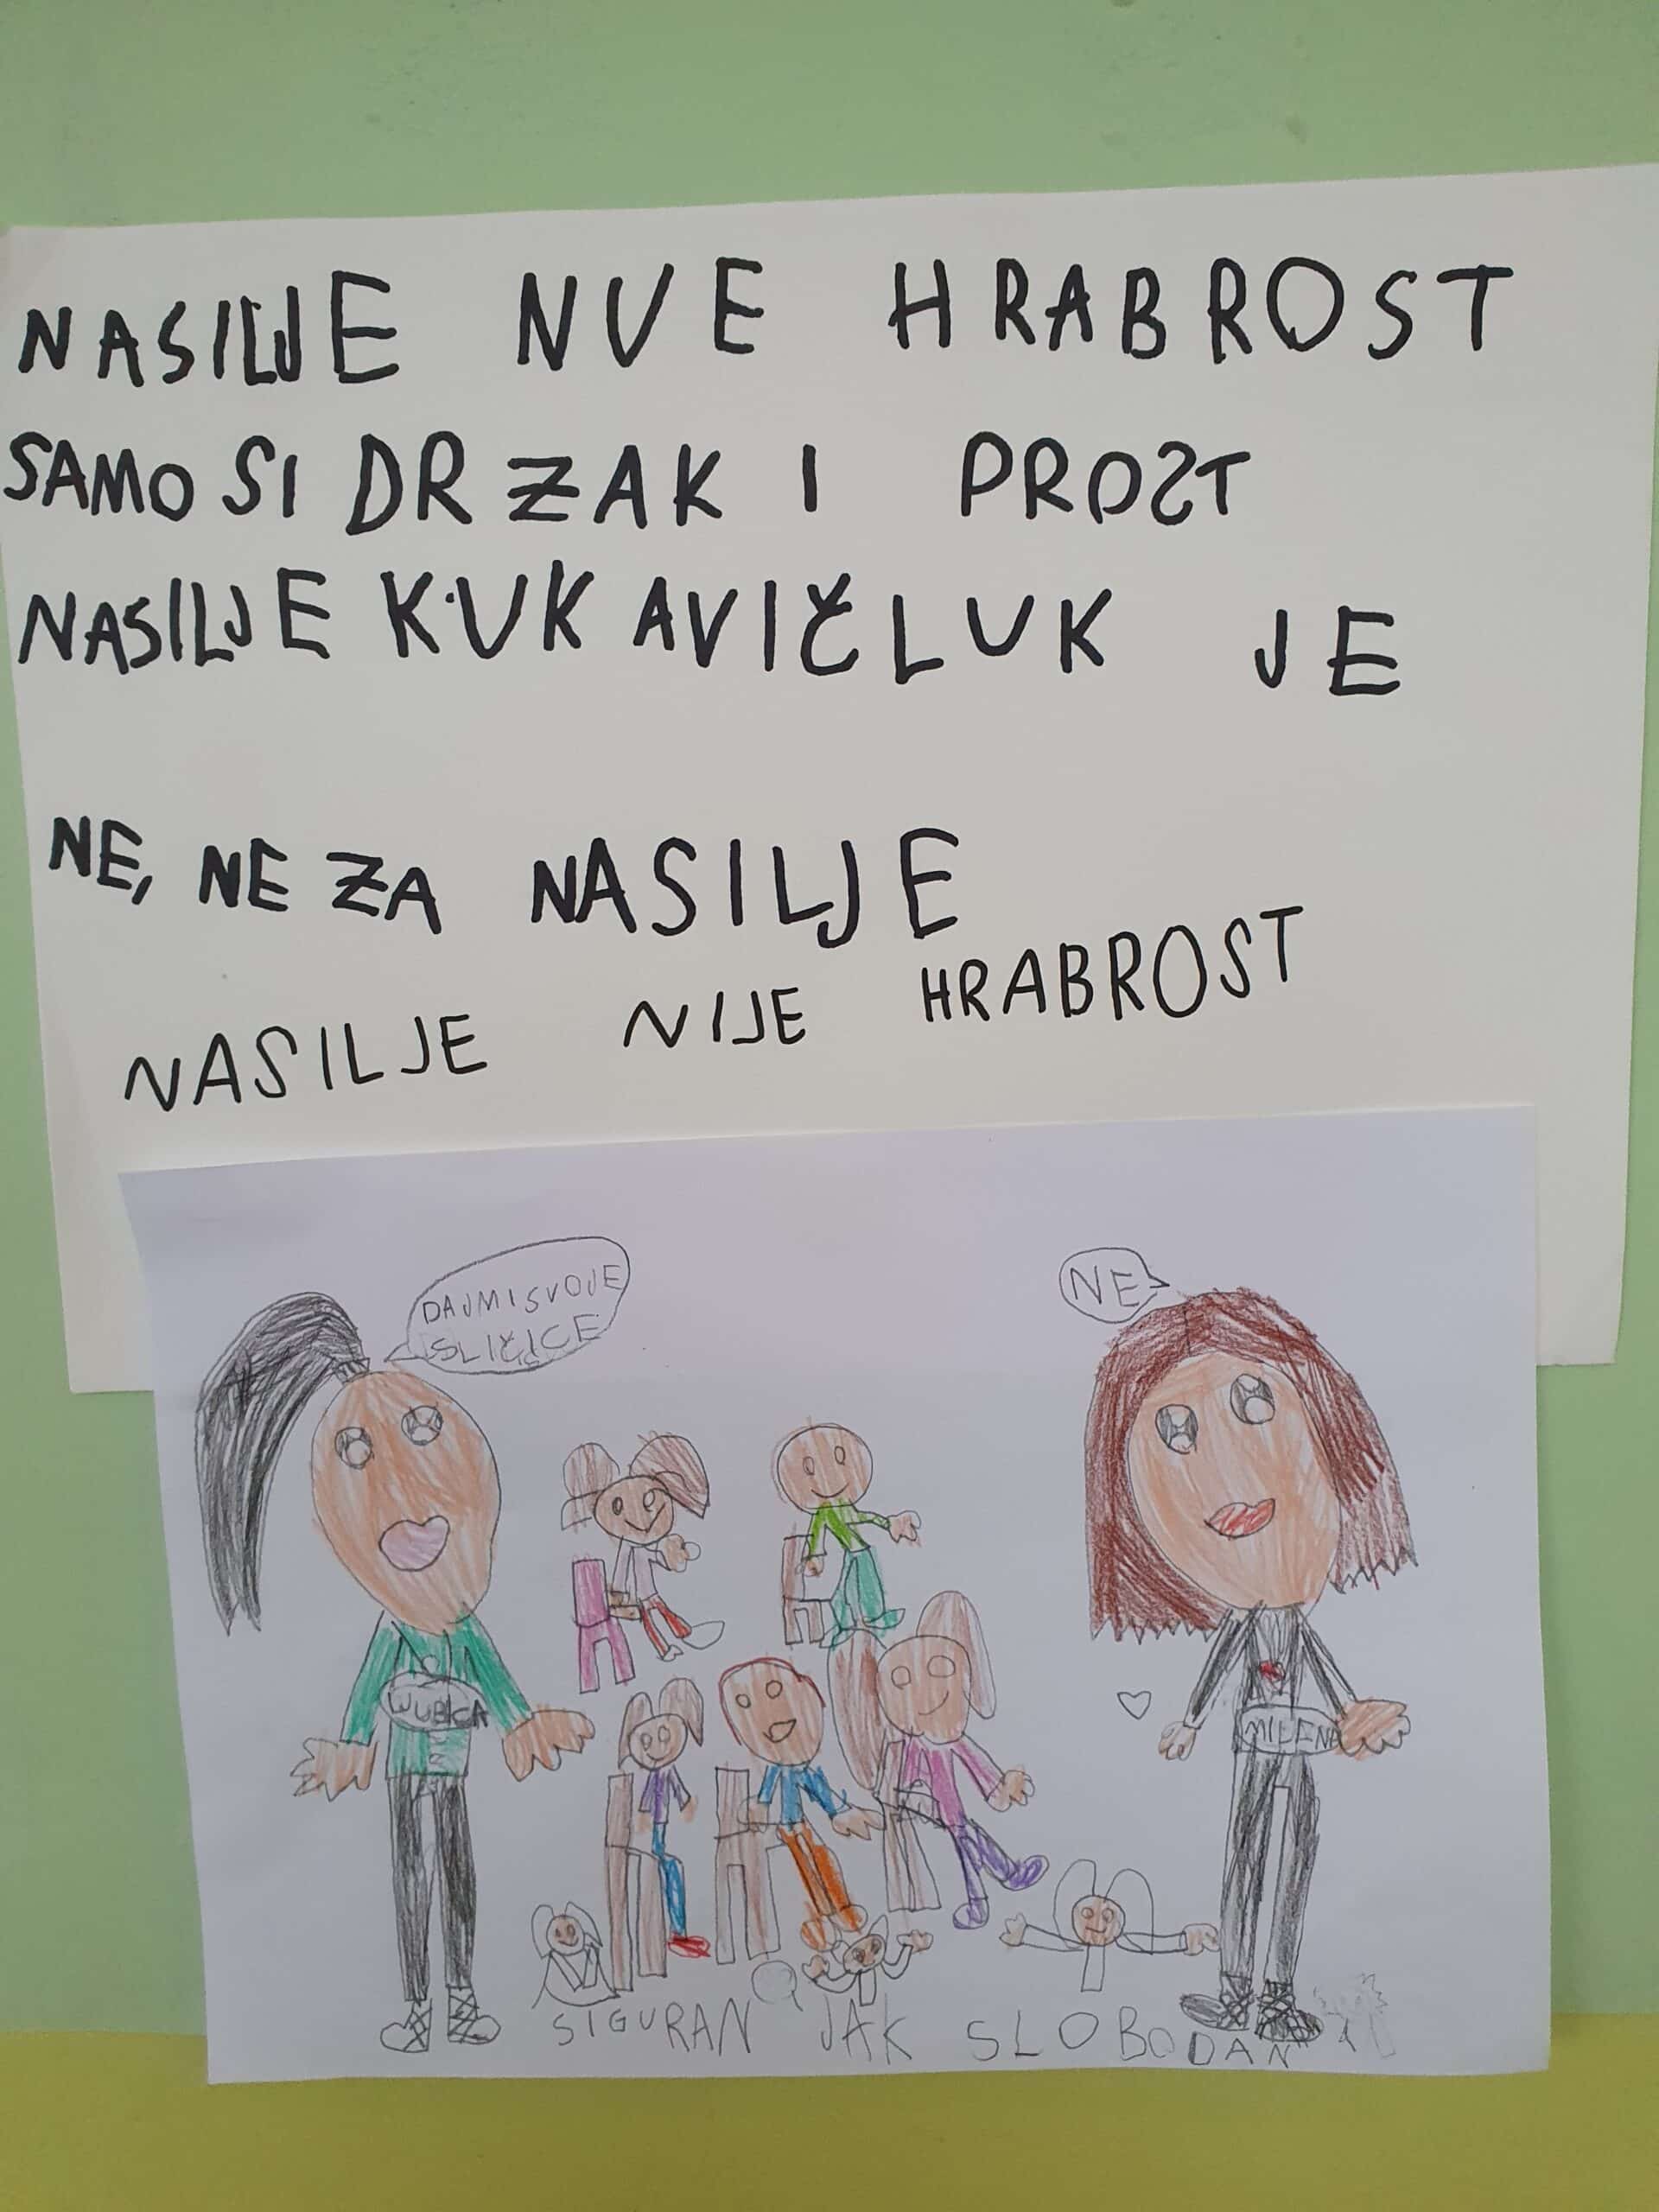 NASILJE NIJE HRABROST
SAMO SI DRZAK I PROST
NASILJE KUKAVIČLUK JE
NE, NE ZA NASILJE
NASILJE NIJE HRABROST
DAJ MI SVOJE
SLIČICE
NE
LJUBICA
MILENA
SIGURAN JAK SLOBODAN